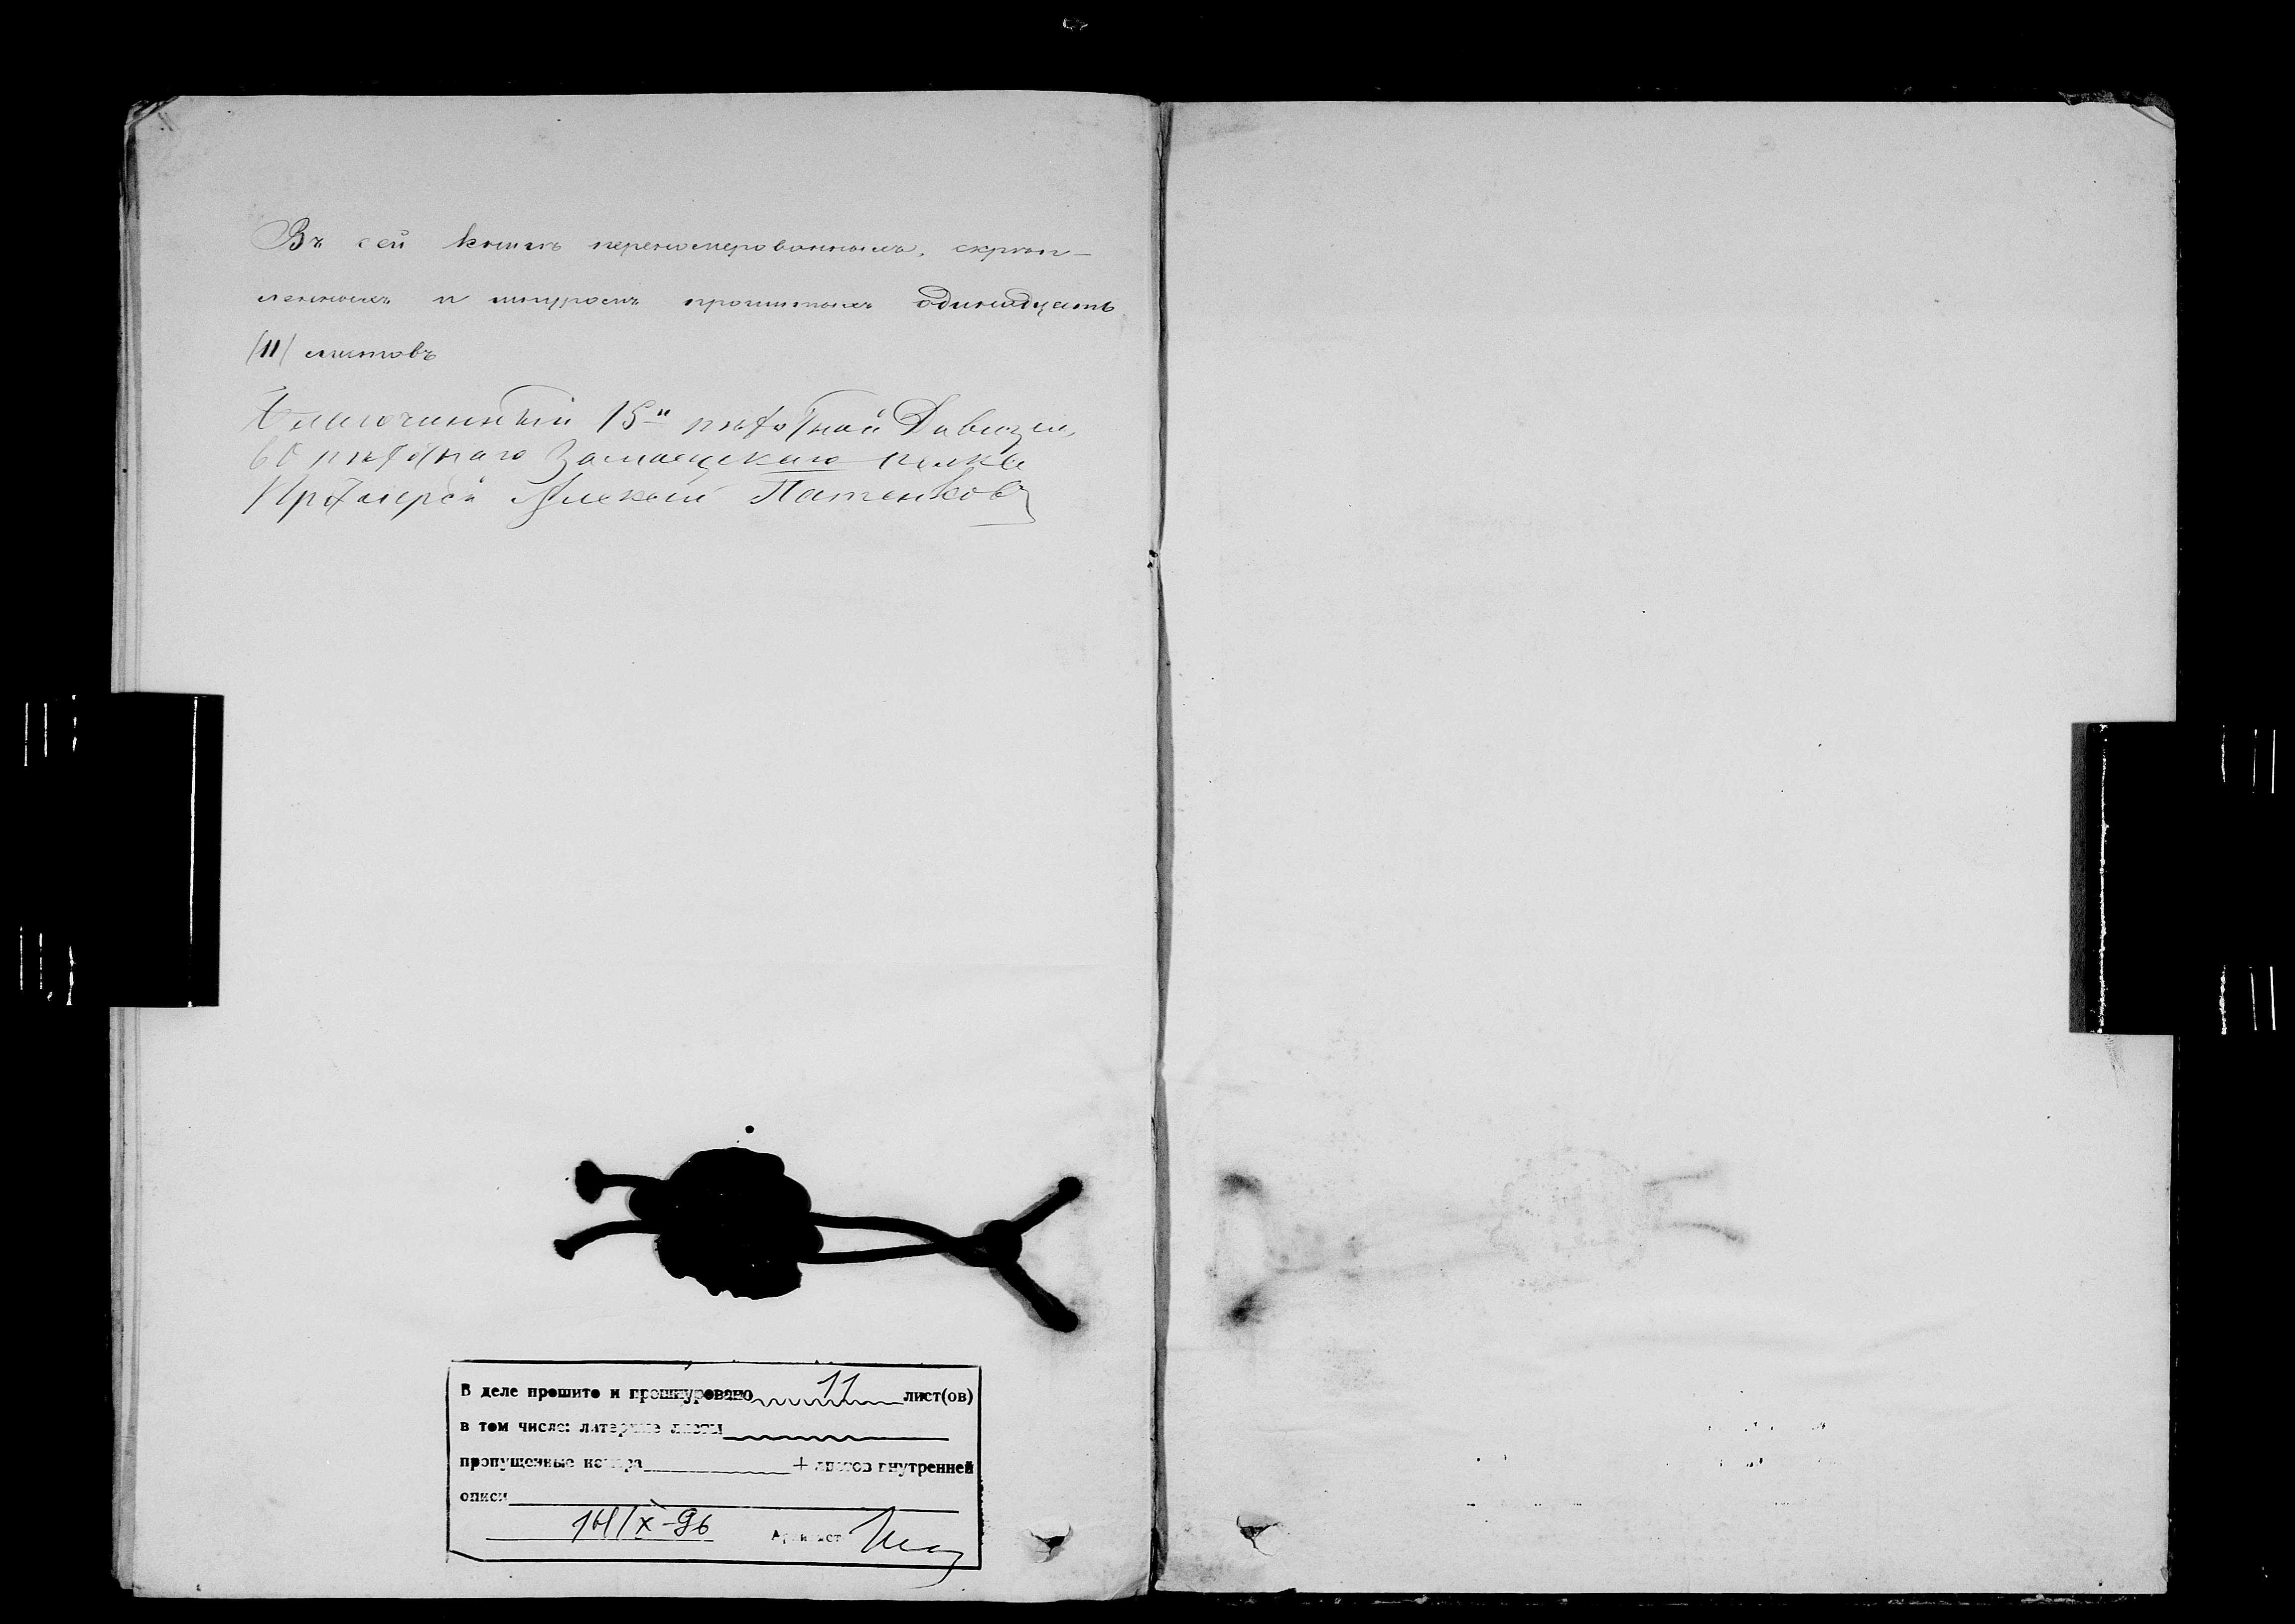 Въ сей книгѣ перенумерованныхъ, скрѣп-
ленныхъ и шнуромъ прошитыхъ одинадцать
(11) листовъ
Благочинный 15й пѣхотной Дивизіи,
60 пѣхотнаго Замосцскаго полка
Протоіерей Алексѣй Патенковъ
В деле прошито и прошнуровано 11 лист(ов)
в том числе: литерные листы
пропущенные номера + листов внутренней
описи
Архивист